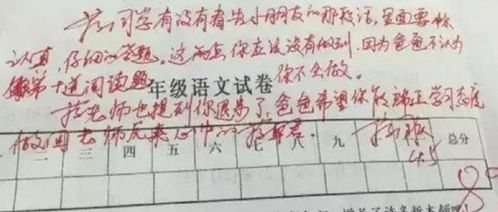 同学有没有看告小朋友们那段话,里面要你
认真,仔细的答题。这两点你应该没有做到,因为爸爸不认为
第十道阅读题 你不会做。
年级语文试卷
老师也提到你退步了,爸爸希望你能端正学习态度
做回老师心中的
4.5
二 三 四 五 六 七 八 九 总分